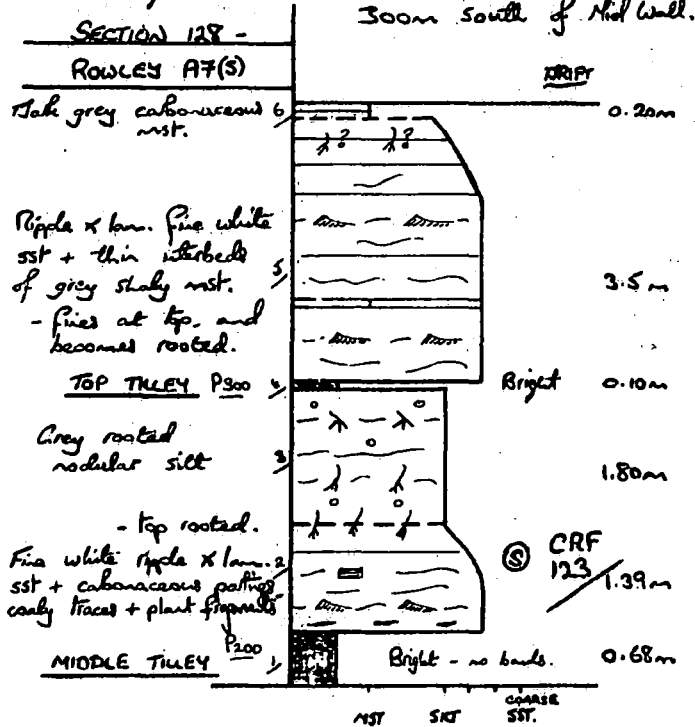 SECTION 128 -
ROWLEY A7(S)
300m South of Mid Wall.
DRIFT
Dark grey carbonaceous 6
mst.
0.20m
? ?
Ripple x lam. fine white
sst + thin interbeds
of grey shaly mst. 5
- fines at top, and
becomes rooted.
3.5m
TOP TILLEY P300 4
Bright 0.10m
Grey rooted
nodular silt 3
1.80m
- top rooted.
Fine white ripple x lam. 2
sst + cabonaceous partings
coaly traces + plant fragments
S CRF
123
1.39m
P200
MIDDLE TILLEY 1
Bright - no bands. 0.68m
MST SILT COARSE
SST.